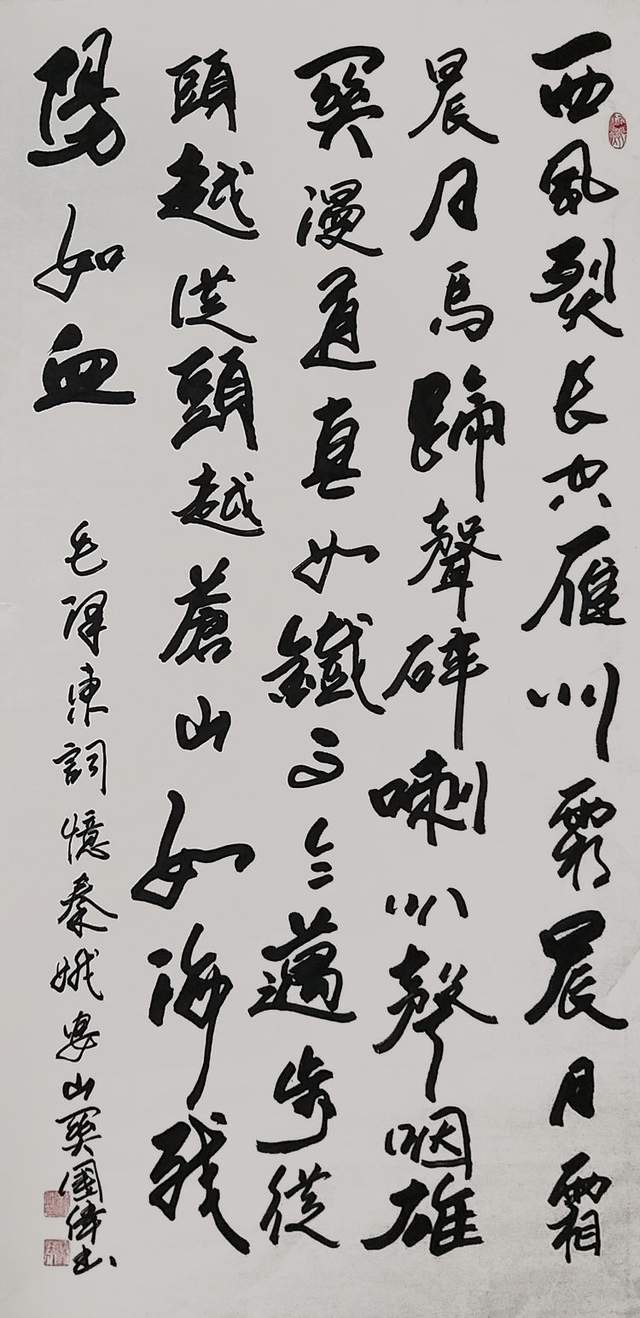 西風烈長空雁叫霜晨月霜
晨月馬蹄聲碎喇叭聲咽雄
関漫道真如鐵而今邁步從
頭越從頭越蒼山如海残
陽如血
毛澤東詞憶秦娥婁山関國偉書